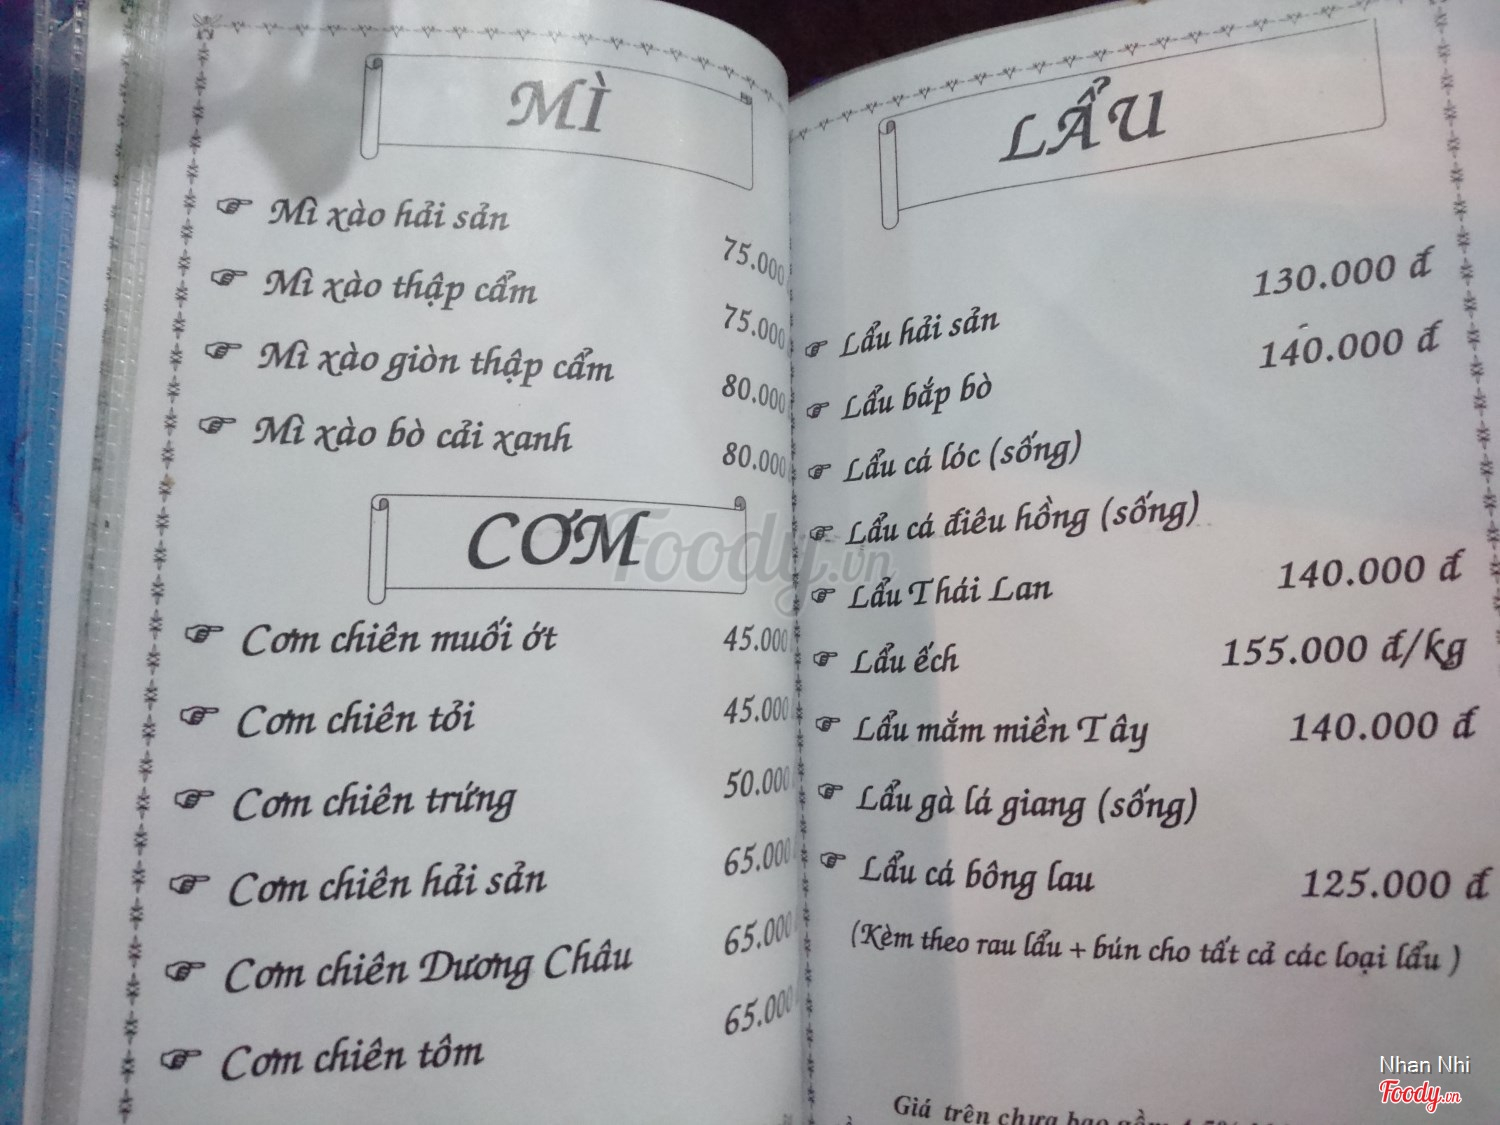 MÌ
Mì xào hải sản 75.000
Mì xào thập cẩm 75.000
Mì xào giòn thập cẩm 80.000
Mì xào bò cải xanh 80.000
CƠM
Cơm chiên muối ớt 45.000
Cơm chiên tỏi 45.000
Cơm chiên trứng 50.000
Cơm chiên hải sản 65.000
Cơm chiên Dương Châu 65.000
Cơm chiên tôm 65.000
LẨU
Lẩu hải sản 130.000 đ
Lẩu bắp bò 140.000 đ
Lẩu cá lóc (sống)
Lẩu cá điêu hồng (sống)
Lẩu Thái Lan 140.000 đ
Lẩu ếch 155.000 đ/kg
Lẩu mắm miền Tây 140.000 đ
Lẩu gà lá giang (sống)
Lẩu cá bông lau 125.000 đ
(Kèm theo rau lẩu + bún cho tất cả các loại lẩu )
Giá trên chưa bao gồm
Foody.vn
Nhan Nhi
Foody.vn